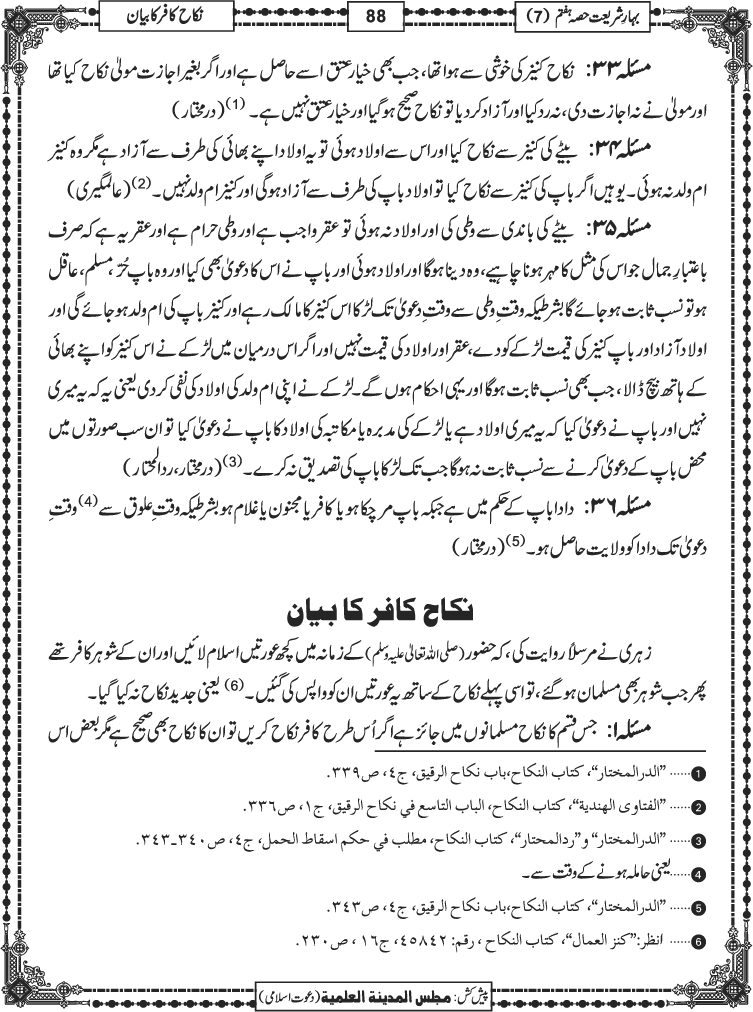 بہارِ شریعت حصہ ہفتم (7)
88
نکاح کافر کا بیان
مسئلہ ۳۳: نکاح کنیز کی خوشی سے ہوا تھا، جب بھی خیارِ عتق اسے حاصل ہے اور اگر بغیر اجازت مولیٰ نکاح کیا تھا
اور مولیٰ نے نہ اجازت دی، نہ رد کیا اور آزاد کر دیا تو نکاح صحیح ہو گیا اور خیارِ عتق نہیں ہے۔ (1) (درمختار)
مسئلہ ۳۴: بیٹے کی کنیز سے نکاح کیا اور اس سے اولاد ہوئی تو یہ اولاد اپنے بھائی کی طرف سے آزاد ہے مگر وہ کنیز
ام ولد نہ ہوئی۔ یوہیں اگر باپ کی کنیز سے نکاح کیا تو اولاد باپ کی طرف سے آزاد ہوگی اور کنیز ام ولد نہیں۔ (2) (عالمگیری)
مسئلہ ۳۵: بیٹے کی باندی سے وطی کی اور اولاد نہ ہوئی تو عقر واجب ہے اور وطی حرام ہے اور عقر یہ ہے کہ صرف
باعتبارِ جمال جو اس کی مثل کا مہر ہونا چاہیے، وہ دینا ہوگا اور اولاد ہوئی اور باپ نے اس کا دعویٰ بھی کیا اور وہ باپ حُرّ، مسلم، عاقل
ہو تو نسب ثابت ہو جائے گا بشرطیکہ وقتِ وطی سے وقتِ دعویٰ تک لڑکا اس کنیز کا مالک رہے اور کنیز باپ کی ام ولد ہو جائے گی اور
اولاد آزاد اور باپ کنیز کی قیمت لڑکے کو دے، عقر اور اولاد کی قیمت نہیں اور اگر اس درمیان میں لڑکے نے اس کنیز کو اپنے بھائی
کے ہاتھ بیچ ڈالا، جب بھی نسب ثابت ہوگا اور یہی احکام ہوں گے۔ لڑکے نے اپنی ام ولد کی اولاد کی نفی کر دی یعنی یہ کہ یہ میری
نہیں اور باپ نے دعویٰ کیا کہ یہ میری اولاد ہے یا لڑکے کی مدبرہ یا مکاتبہ کی اولاد کا باپ نے دعویٰ کیا تو ان سب صورتوں میں
محض باپ کے دعویٰ کرنے سے نسب ثابت نہ ہوگا جب تک لڑکا باپ کی تصدیق نہ کرے۔ (3) (درمختار، ردالمحتار)
مسئلہ ۳۶: دادا باپ کے حکم میں ہے جبکہ باپ مر چکا ہو یا کافر یا مجنون یا غلام ہو بشرطیکہ وقتِ علوق سے (4) وقتِ
دعویٰ تک دادا کو ولایت حاصل ہو۔ (5) (درمختار)
نکاح کافر کا بیان
زہری نے مرسلاً روایت کی، کہ حضور (صلی اللہ تعالیٰ علیہ وسلم) کے زمانہ میں کچھ عورتیں اسلام لائیں اور ان کے شوہر کافر تھے
پھر جب شوہر بھی مسلمان ہو گئے، تو اسی پہلے نکاح کے ساتھ یہ عورتیں ان کو واپس کی گئیں۔ (6) یعنی جدید نکاح نہ کیا گیا۔
مسئلہ ۱: جس قسم کا نکاح مسلمانوں میں جائز ہے اگر اُس طرح کافر نکاح کریں تو ان کا نکاح بھی صحیح ہے مگر بعض اس
1 ...... "الدرالمختار"، کتاب النکاح، باب نکاح الرقیق، ج٤، ص٣٣٩.
2 ...... "الفتاوی الهندیة"، کتاب النکاح، الباب التاسع في نکاح الرقیق، ج١، ص٣٣٦.
3 ...... "الدرالمختار" و"ردالمحتار"، کتاب النکاح، مطلب في حکم اسقاط الحمل، ج٤، ص٣٤٠-٣٤٣.
4 ...... یعنی حاملہ ہونے کے وقت سے۔
5 ...... "الدرالمختار"، کتاب النکاح، باب نکاح الرقیق، ج٤، ص٣٤٣.
6 ...... انظر: "کنز العمال"، کتاب النکاح، رقم: ٤٥٨٤٢، ج١٦، ص٢٣٠.
پیش کش: مجلس المدينة العلمية (دعوت اسلامی)